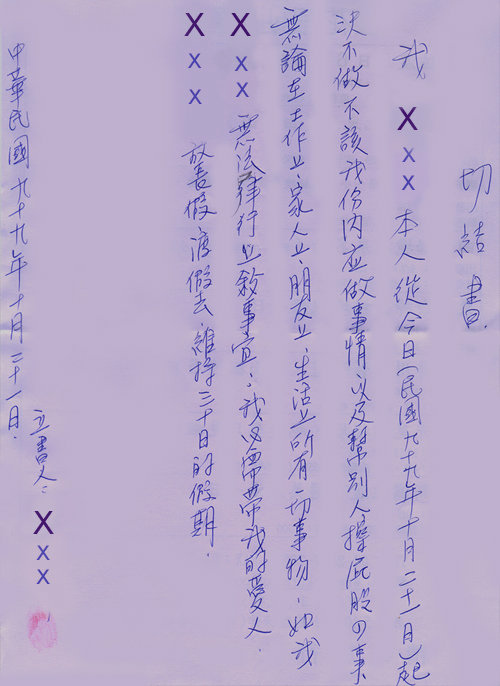 切結書
我 XXX 本人從今日(民國九十九年十月二十一日)起
決不做不該我份內应做事情以及幫別人擦屁股の事
無論在工作上、家人上、朋友上、生活上所有一切事物，如我
XXX 無法律行上敘事宜。我必需帶我的愛人
XXX 放長假渡假去，維持三十日的假期．
立書人：XXX
中華民國九十九年十月二十一日．